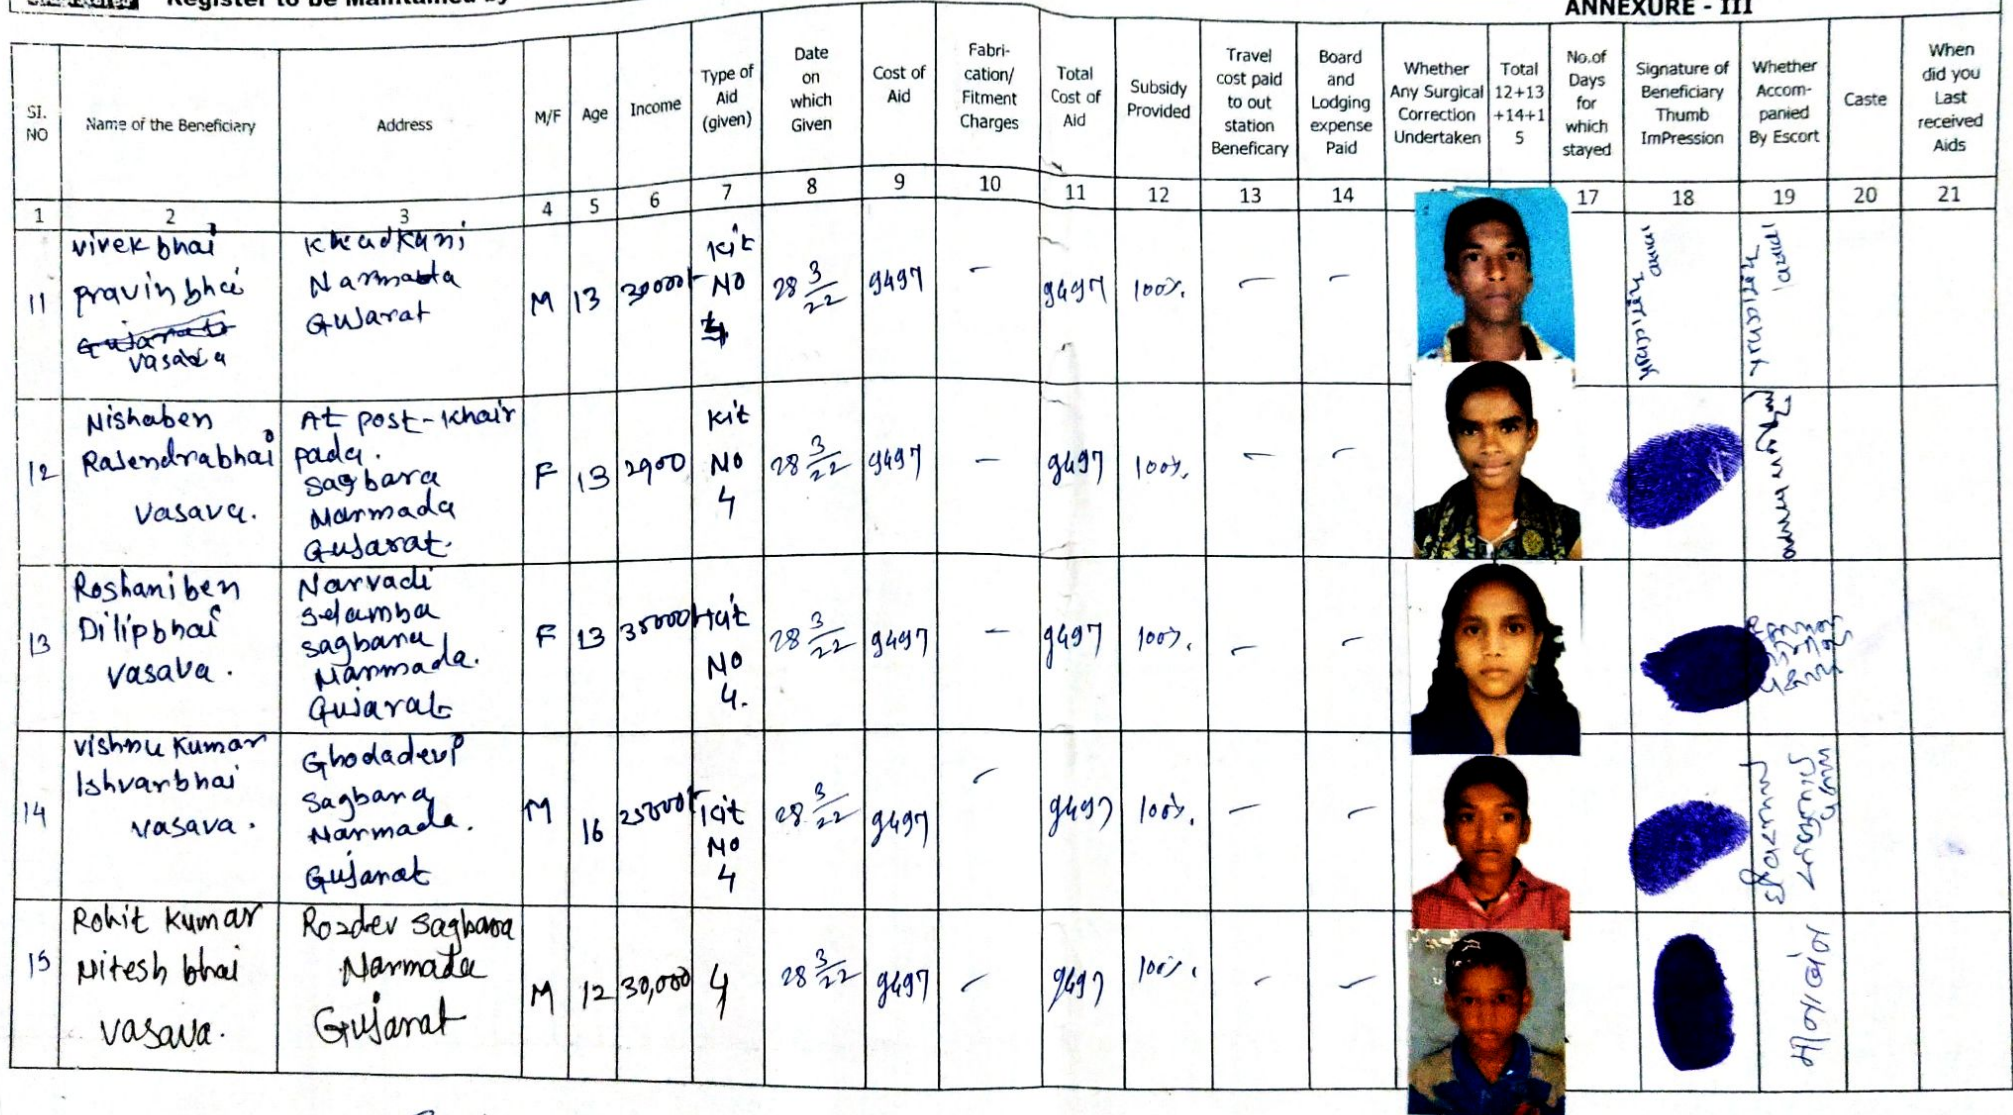 Register to be Maintained by
ANNEXURE - III
SI. NO
Name of the Beneficiary
Address
M/F
Age
Income
Type of Aid (given)
Date on which Given
Cost of Aid
Fabri-cation/ Fitment Charges
Total Cost of Aid
Subsidy Provided
Travel cost paid to out station Beneficary
Board and Lodging expense Paid
Whether Any Surgical Correction Undertaken
Total 12+13+14+15
No.of Days for which stayed
Signature of Beneficiary Thumb ImPression
Whether Accom-panied By Escort
Caste
When did you Last received Aids
1 2 3 4 5 6 7 8 9 10 11 12 13 14 17 18 19 20 21
11
vivek bhai
pravinbhai
vasava
Narmada
Gujarat
M 13 30000/-
Kit
No
4
28 3/22 9497 – 9497 100% – –
12
Nishaben
Rajendrabhai
vasava.
At post-Khair
pada.
Sagbara
Narmada
Gujarat.
F 13 2900
Kit
No
4
28 3/22 9497 – 9497 100% – –
13
Roshaniben
Dilipbhai
vasava.
Narvadi
Selamba
Sagbara
Narmada.
Gujarat
F 13 35000/-
Kit
No
4.
28 3/22 9497 – 9497 100% – –
14
vishnu kumar
Ishvarbhai
vasava.
Ghodadevi
Sagbara
Narmada.
Gujarat
M 16 25000/-
Kit
No
4
28 3/22 9497 – 9497 100% – –
15
Rohit kumar
Nitesh bhai
vasava.
Rozdev Sagbara
Narmada
Gujarat
M 12 30,000 4 28 3/22 9497 – 9497 100% – –